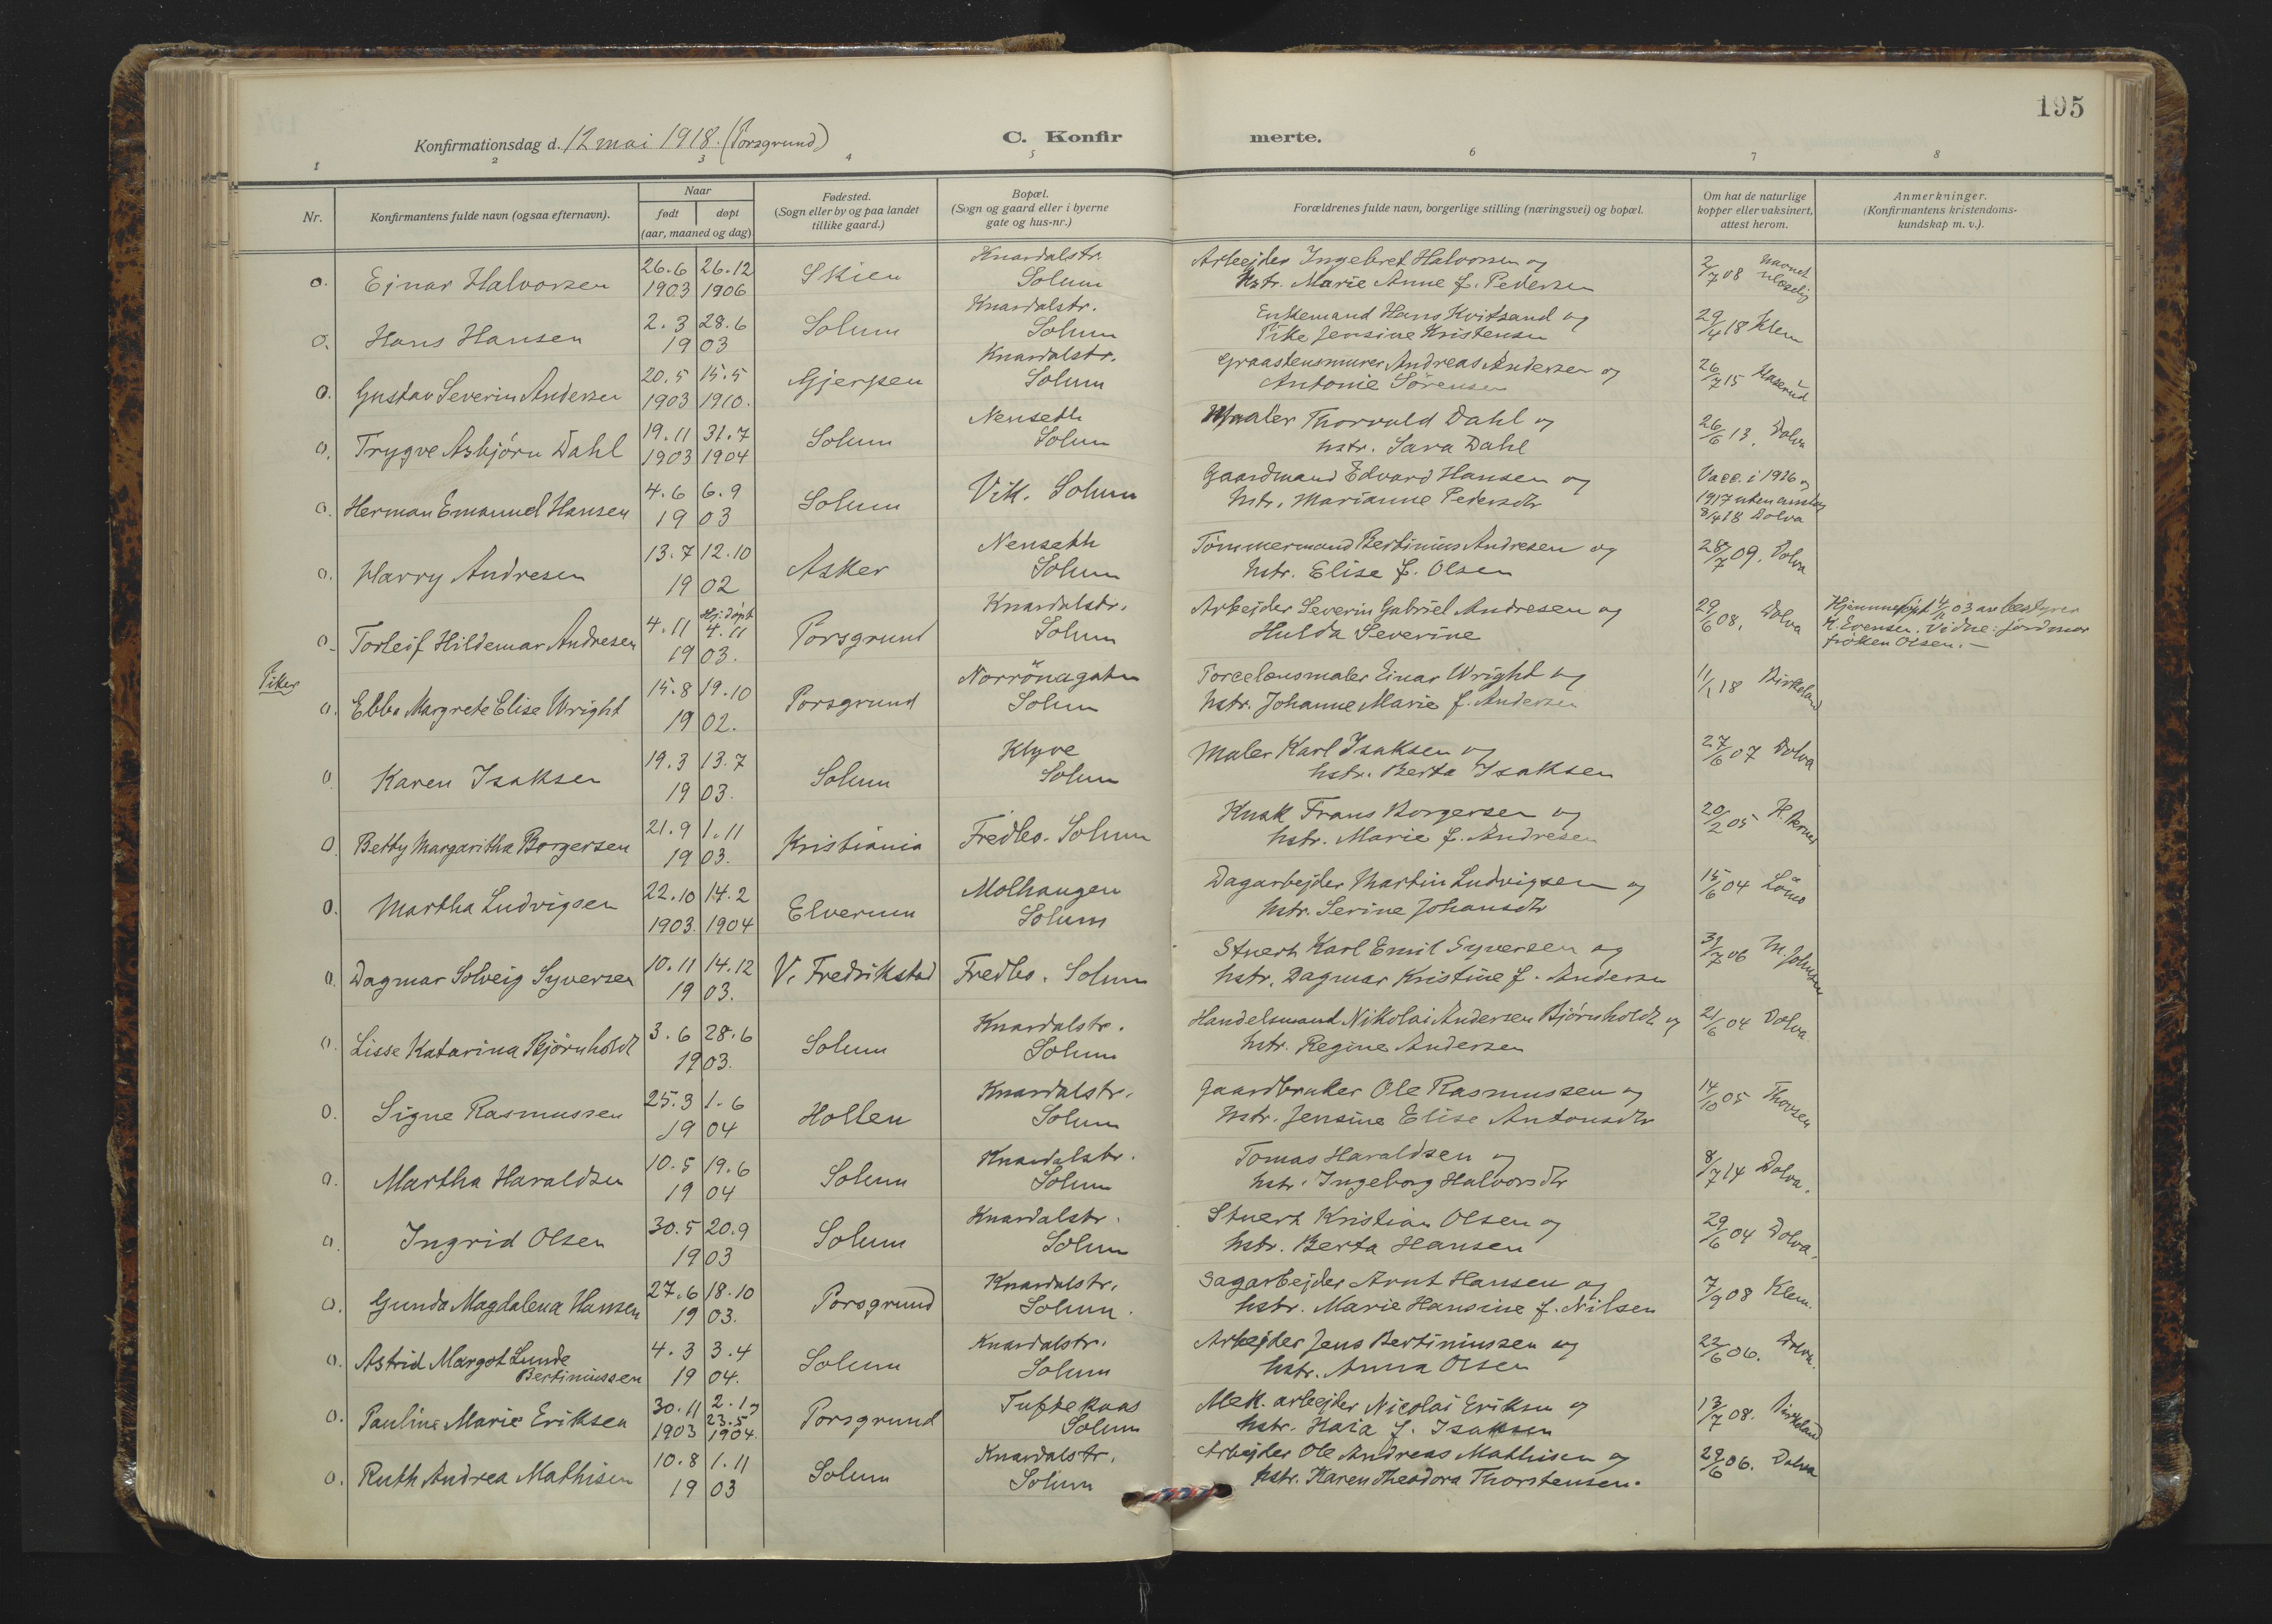 195
Konfirmationsdag d. 12 mai 1918. (Porsgrund)
C. Konfirmerte.
1 2 3 4 5 6 7 8
Nr.
Konfirmantens fulde navn (ogsaa efternavn).
Naar
født døpt
(aar, maaned og dag)
Fødested.
(Sogn eller by og paa landet
tillike gaard.)
Bopæl.
(Sogn og gaard eller i byerne
gate og hus-nr.)
Forældrenes fulde navn, borgerlige stilling (næringsvei) og bopæl.
Om hat de naturlige
kopper eller vaksinert,
attest herom.
Anmerkninger.
(Konfirmantens kristendoms-
kundskap m. v.).
o. Ejnar Halvorsen 26.6 1903 26.12 1906 Skien Knardalstr. Solum
Arbejder Ingebret Halvorsen og
hstr. Marie Anne f. Pedersen
2/7 08 Navnet ulæselig
o. Hans Hansen 2.3 28.6 1903 Solum Knardalstr. Solum
Enkemand Hans Kvitsand og
Pike Jensine Kristensen
29/4 18 Klem
o. Gustav Severin Andersen 20.5 1903 15.5 1910. Gjerpen Knardalstr. Solum
Graastensmurer Andreas Andersen og
Antonie Sørensen
26/7 15 Maserud
o. Trygve Asbjørn Dahl 19.11 1903 31.7 1904 Solum Nenseth Solum
Maaler Thorvald Dahl og
hstr. Sara Dahl
26/6 13. Dolva
o. Herman Emanuel Hansen 4.6 6.9 1903 Solum Vik. Solum
Gaardmand Edvard Hansen og
hstr. Marianne Pedersdtr
Vacc. i 1916 og
1917 uten anslag
8/4 18 Dolva
o. Harry Andresen 13.7 12.10 1902 Asker Nenseth Solum
Tømmermand Bertinius Andresen og
hstr. Elise f. Olsen
28/7 09. Dolva
o. Torleif Hildemar Andresen 4.11 Hj.døpt 4.11 1903. Porsgrund Knardalstr. Solum
Arbejder Severin Gabriel Andresen og
Hulda Severine
29/6 08. Dolva
Hjemmedøpt 4/11 03 av bestyrer
K. Evensen. Vidne: jordmor
frøken Olsen. —
Piker
o. Ebba Margrete Elise Wright 15.8 19.10 1902. Porsgrund Norrønagaten Solum
Porcelænsmaler Einar Wright og
hstr. Johanne Marie f. Andersen
11/1 18 Birkeland
o. Karen Isaksen 19.3 13.7 1903. Solum Klyve Solum
Maler Karl Isaksen og
hstr. Berta Isaksen
27/6 07 Dolva
o. Betty Margaritha Borgersen 21.9 1.11 1903. Kristiania Fredbo. Solum
Kusk Frans Borgersen og
hstr. Marie f. Andresen
20/2 05
o. Martha Ludvigsen 22.10 1903. 14.2 1904 Elverum Molhaugen Solum
Dagarbejder Martin Ludvigsen og
hstr. Serine Johansdtr
15/6 04
o. Dagmar Solveig Syversen 10.11 14.12 1903. V. Fredrikstad Fredbo. Solum
Stuert Karl Emil Syversen og
hstr. Dagmar Kristine f. Andersen
31/7 06 M. Johnsen
o. Lisse Katarina Bjørnholdt 3.6 28.6 1903. Solum Knardalstr. Solum
Handelsmand Nikolai Andersen Bjørnholdt og
hstr. Regine Andersen
21/6 04 Dolva.
o. Signe Rasmussen 25.3 1.6 1904 Hollen Knardalstr. Solum
Gaardbruker Ole Rasmussen og
hstr. Jensine Elise Antonsdtr
14/10 05 Thorsen
o. Martha Haraldsen 10.5 19.6 1904 Solum Knardalstr. Solum
Tomas Haraldsen og
hstr. Ingeborg Halvorsdtr
8/7 14 Dolva.
o. Ingrid Olsen 30.5 20.9 1903 Solum Knardalstr. Solum
Stuert Kristian Olsen og
hstr. Berta Hansen
29/6 04 Dolva.
o. Gunda Magdalena Hansen 27.6 18.10 1903. Porsgrund Knardalstr. Solum.
Sagarbejder Arnt Hansen og
hstr. Marie Hansine f. Nilsen
7/9 08 Klem.
o. Astrid Margot Lunde Bertiniussen 4.3 3.4 1904. Solum Knardalstr. Solum
Arbejder Jens Bertiniussen og
hstr. Anna Olsen
22/6 06. Dolva.
o. Pauline Marie Eriksen 30.11 1903 2.1 og 23.5 1904. Porsgrund Tuftekaas Solum
Mek. arbejder Nicolai Eriksen og
hstr. Maia f. Isaksen
13/7 08. Birkeland
o. Ruth Andrea Mathisen 10.8 1.11 1903 Solum Knardalstr. Solum
Arbejder Ole Andreas Mathisen og
hstr. Karen Theodora Thorstensen.
29/6 06. Dolva